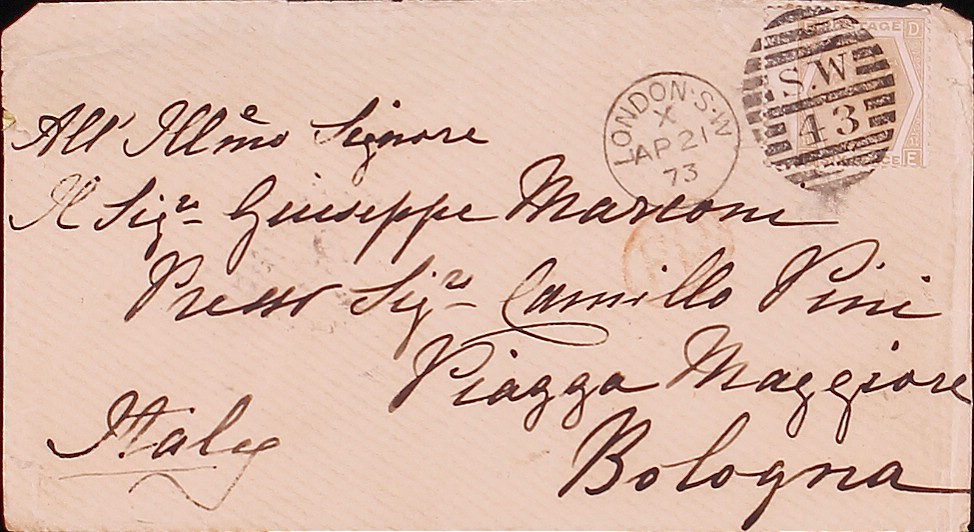 All' Illmo Signore
Il Sigr Giuseppe Marconi
Presso Sigr Camillo Pini
Piazza Maggiore
Bologna
Italy
LONDON·S·W
X
AP 21
73
S.W
43
POSTAGE
D
E